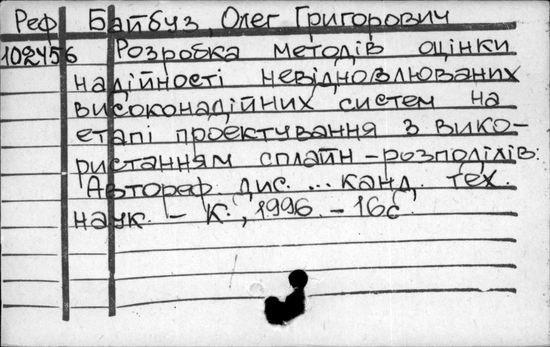 Реф Байбуз, Олег Григорович
102456 Розробка методів оцінки
надійності невідновлюваних
високонадійних систем на
етапі проектування з вико-
ристанням сплайн-розподілів:
Автореф. дис. ... канд. тех.
наук. - К., 1996. - 16с.